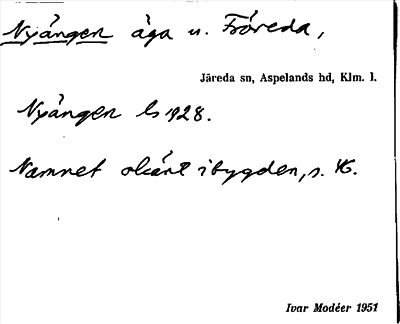 Nyängen äga u. Fröreda,
Järeda sn, Aspelands hd, Klm. l.
Nyängen ls 1928.
Namnet okänt i bygden, s.
Ivar Modéer 1951